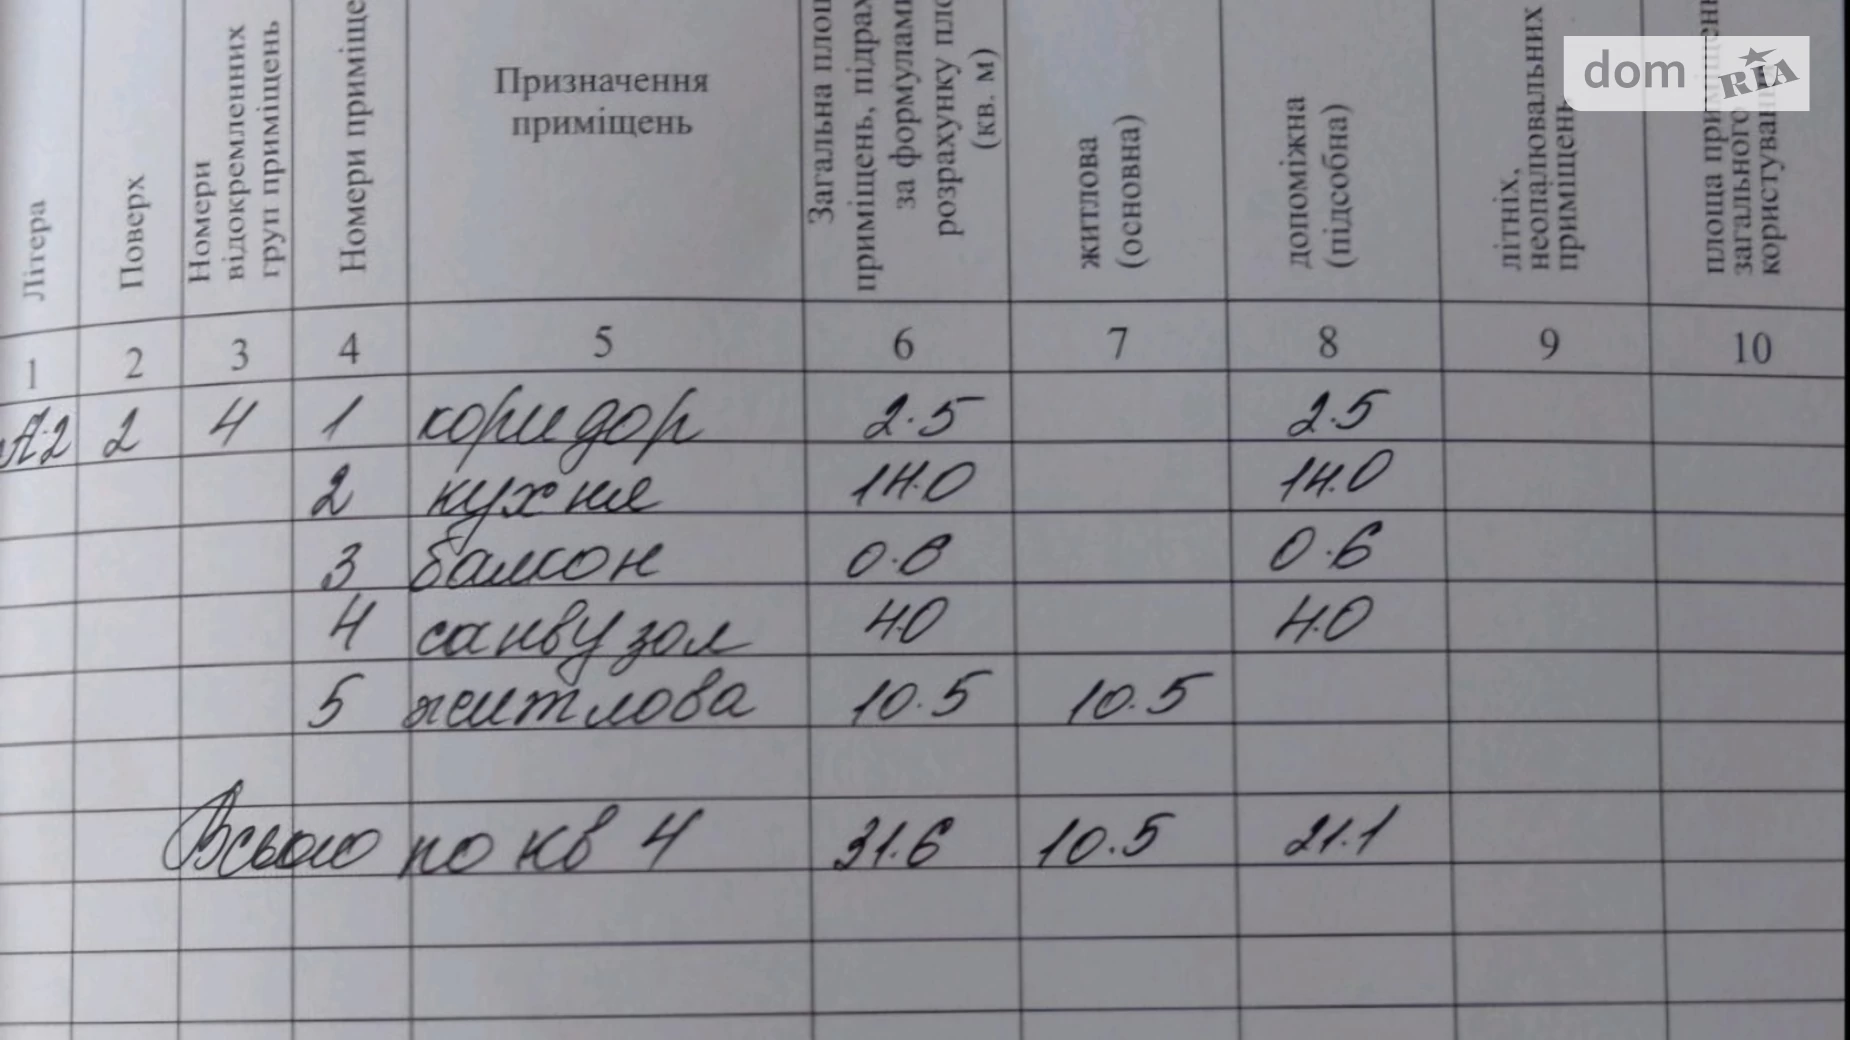 Літера
Поверх
Номери
відокремленних
груп приміщень
Номери
Призначення
приміщень
Загальна
приміщень,
за формулами
розрахунку
(кв. м)
житлова
(основна)
допоміжна
(підсобна)
літніх,
неопалювальних
приміщень
площа
загального
користування
dom RIA
1 2 3 4 5 6 7 8 9 10
А2 2 4 1 коридор 2.5 2.5
2 кухня 14.0 14.0
3 балкон 0.6 0.6
4 санвузол 4.0 4.0
5 житлова 10.5 10.5
Всього по кв 4 31.6 10.5 21.1